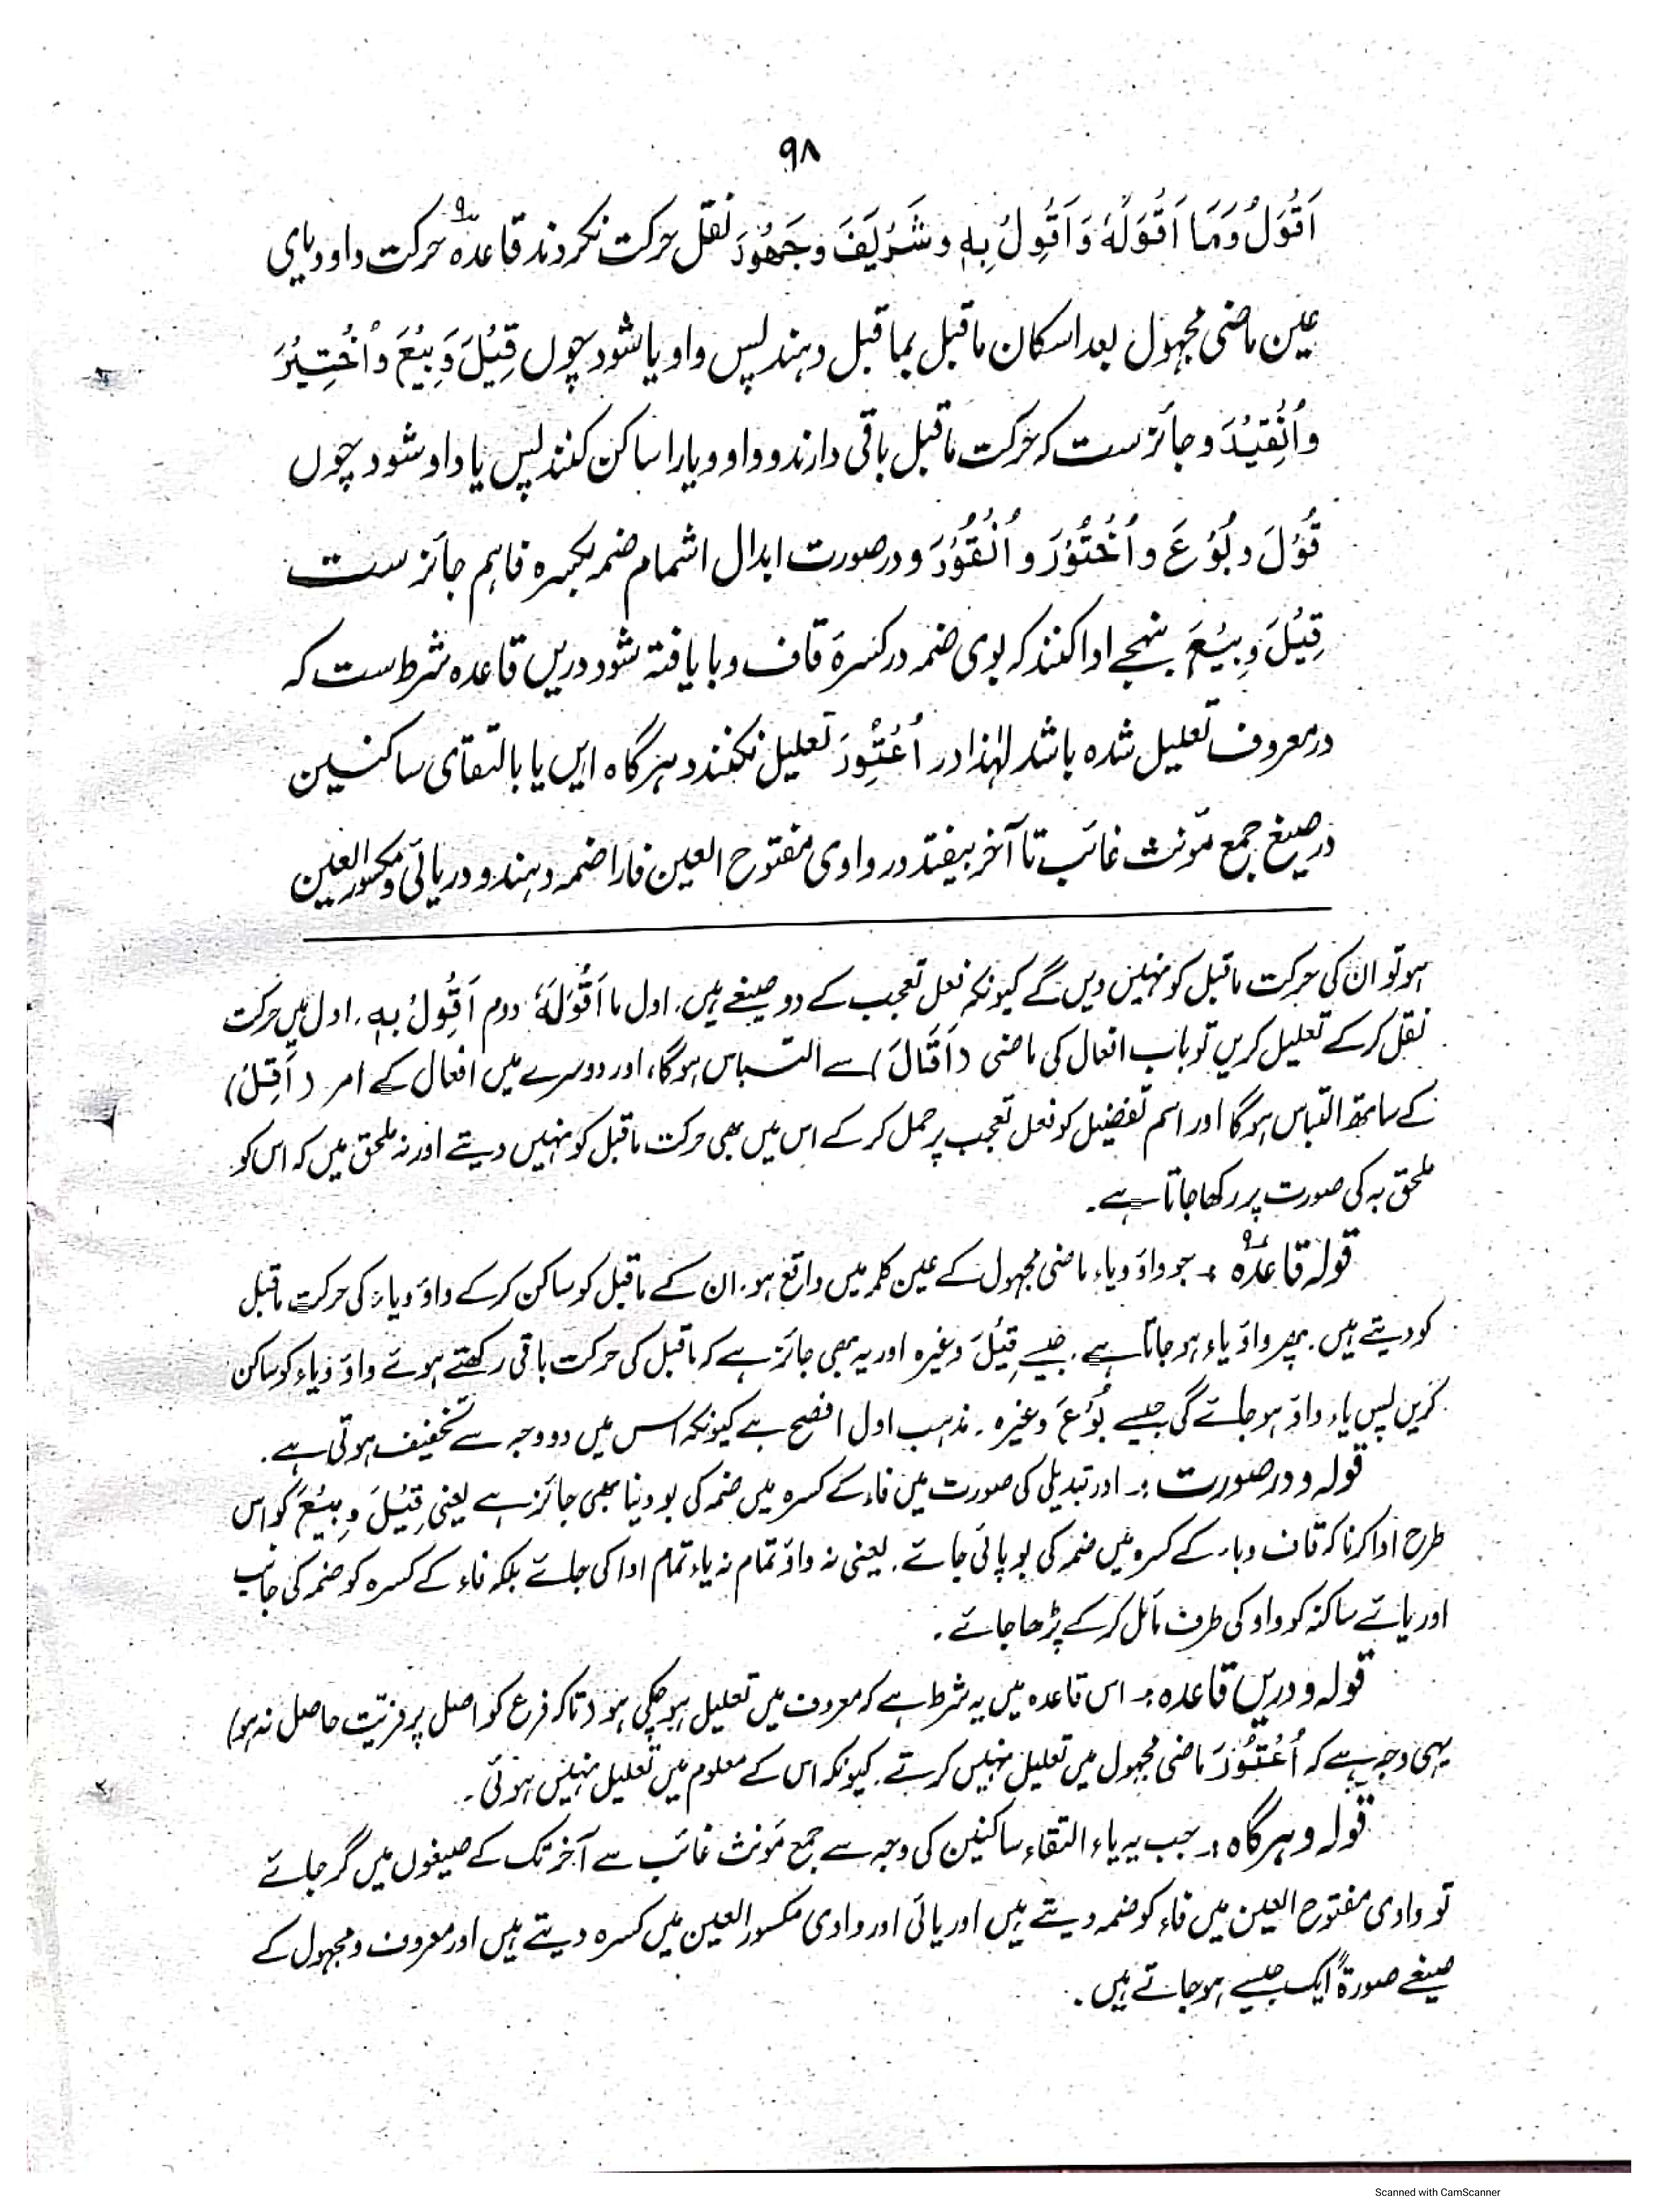 ۹۸
اَقْوَلُ وَمَا اَقْوَلَهٗ وَاَقْوِلْ بِهٖ و شَرْیَفَ و جَهْوَرَ نقل حرکت نکردند قاعدہ ۹ حرکت واو ویای
عین ماضی مجہول بعد اسکان ماقبل بماقبل دہند پس واو یا شود چوں قِیْلَ وَبِیْعَ وَاُخْتِیْرَ
وَاُنْقِیْدَ و جائز ست کہ حرکت ماقبل باقی دارند و واو و یا را ساکن کنند پس یا واو شود چوں
قُوْلَ و بُوْعَ و اُخْتُوْرَ و اُنْقُوْدَ و در صورت ابدال اشمام ضمہ بکسرہ فا ہم جائز ست
قِیْلَ وَبِیْعَ بنہجے ادا کنند کہ بوی ضمہ در کسرۂ قاف و با یافتہ شود دریں قاعدہ شرط ست کہ
در معروف تعلیل شدہ باشد لہٰذا در اُعْتُوِرَ تعلیل نکنند و ہرگاہ ایں یا بالتقای ساکنین
در صیغ جمع مؤنث غائب تا آخر بیفتد در واوی مفتوح العین فا را ضمہ دہند و در یائی و مکسور العین
ہو تو ان کی حرکت ماقبل کو نہیں دیں گے کیونکہ فعل تعجب کے دو صیغے ہیں. اول ما اَقْوَلَهٗ دوم اَقْوِلْ بِهٖ. اول میں حرکت
نقل کرکے تعلیل کریں تو باب افعال کی ماضی (اَقَالَ) سے التباس ہوگا، اور دوسرے میں افعال کے امر (اَقِلْ)
کے ساتھ التباس ہوگا اور اسم تفضیل کو فعل تعجب پر حمل کرکے اس میں بھی حرکت ماقبل کو نہیں دیتے اور نہ ملحق میں کہ اس کو
ملحق بہ کی صورت پر رکھا جاتا ہے۔
قولہ قاعدہ ۹ :۔ جو واؤ ویاء ماضی مجہول کے عین کلمہ میں واقع ہو. ان کے ماقبل کو ساکن کرکے واؤ ویاء کی حرکت ماقبل
کو دیتے ہیں. پھر واؤ یاء ہو جاتا ہے. جیسے قِیْلَ وغیرہ اور یہ بھی جائز ہے کہ ماقبل کی حرکت باقی رکھتے ہوئے واؤ ویاء کو ساکن
کریں پس یاء واؤ ہو جائے گی جیسے بُوْعَ وغیرہ۔ مذہب اول افصح ہے کیونکہ اس میں دو وجہ سے تخفیف ہوتی ہے۔
قولہ و در صورت :۔ اور تبدیلی کی صورت میں فاء کے کسرہ میں ضمہ کی بو دینا بھی جائز ہے یعنی قِیْلَ وِبِیْعَ کو اس
طرح ادا کرنا کہ قاف وباء کے کسرہ میں ضمہ کی بو پائی جائے. یعنی نہ واؤ تمام نہ یاء تمام ادا کی جائے بلکہ فاء کے کسرہ کو ضمہ کی جانب
اور یائے ساکنہ کو واو کی طرف مائل کرکے پڑھا جائے۔
قولہ و دریں قاعدہ :۔ اس قاعدہ میں یہ شرط ہے کہ معروف میں تعلیل ہو چکی ہو (تاکہ فرع کو اصل پر مزیّت حاصل نہ ہو)
یہی وجہ ہے کہ اُعْتُوِرَ ماضی مجہول میں تعلیل نہیں کرتے. کیونکہ اس کے معلوم میں تعلیل نہیں ہوئی۔
قولہ و ہرگاہ :۔ جب یہ یاء التقاء ساکنین کی وجہ سے جمع مؤنث غائب سے آخر تک کے صیغوں میں گر جائے
تو واوی مفتوح العین میں فاء کو ضمہ دیتے ہیں اور یائی اور واوی مکسور العین میں کسرہ دیتے ہیں اور معروف و مجہول کے
صیغے صورۃً ایک جیسے ہو جاتے ہیں۔
Scanned with CamScanner